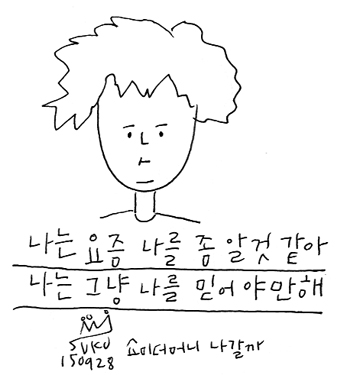 나는 요즘 나를 좀 알것 같아
나는 그냥 나를 믿어야만해
SUKU
150928 쇼미더머니 나갈까